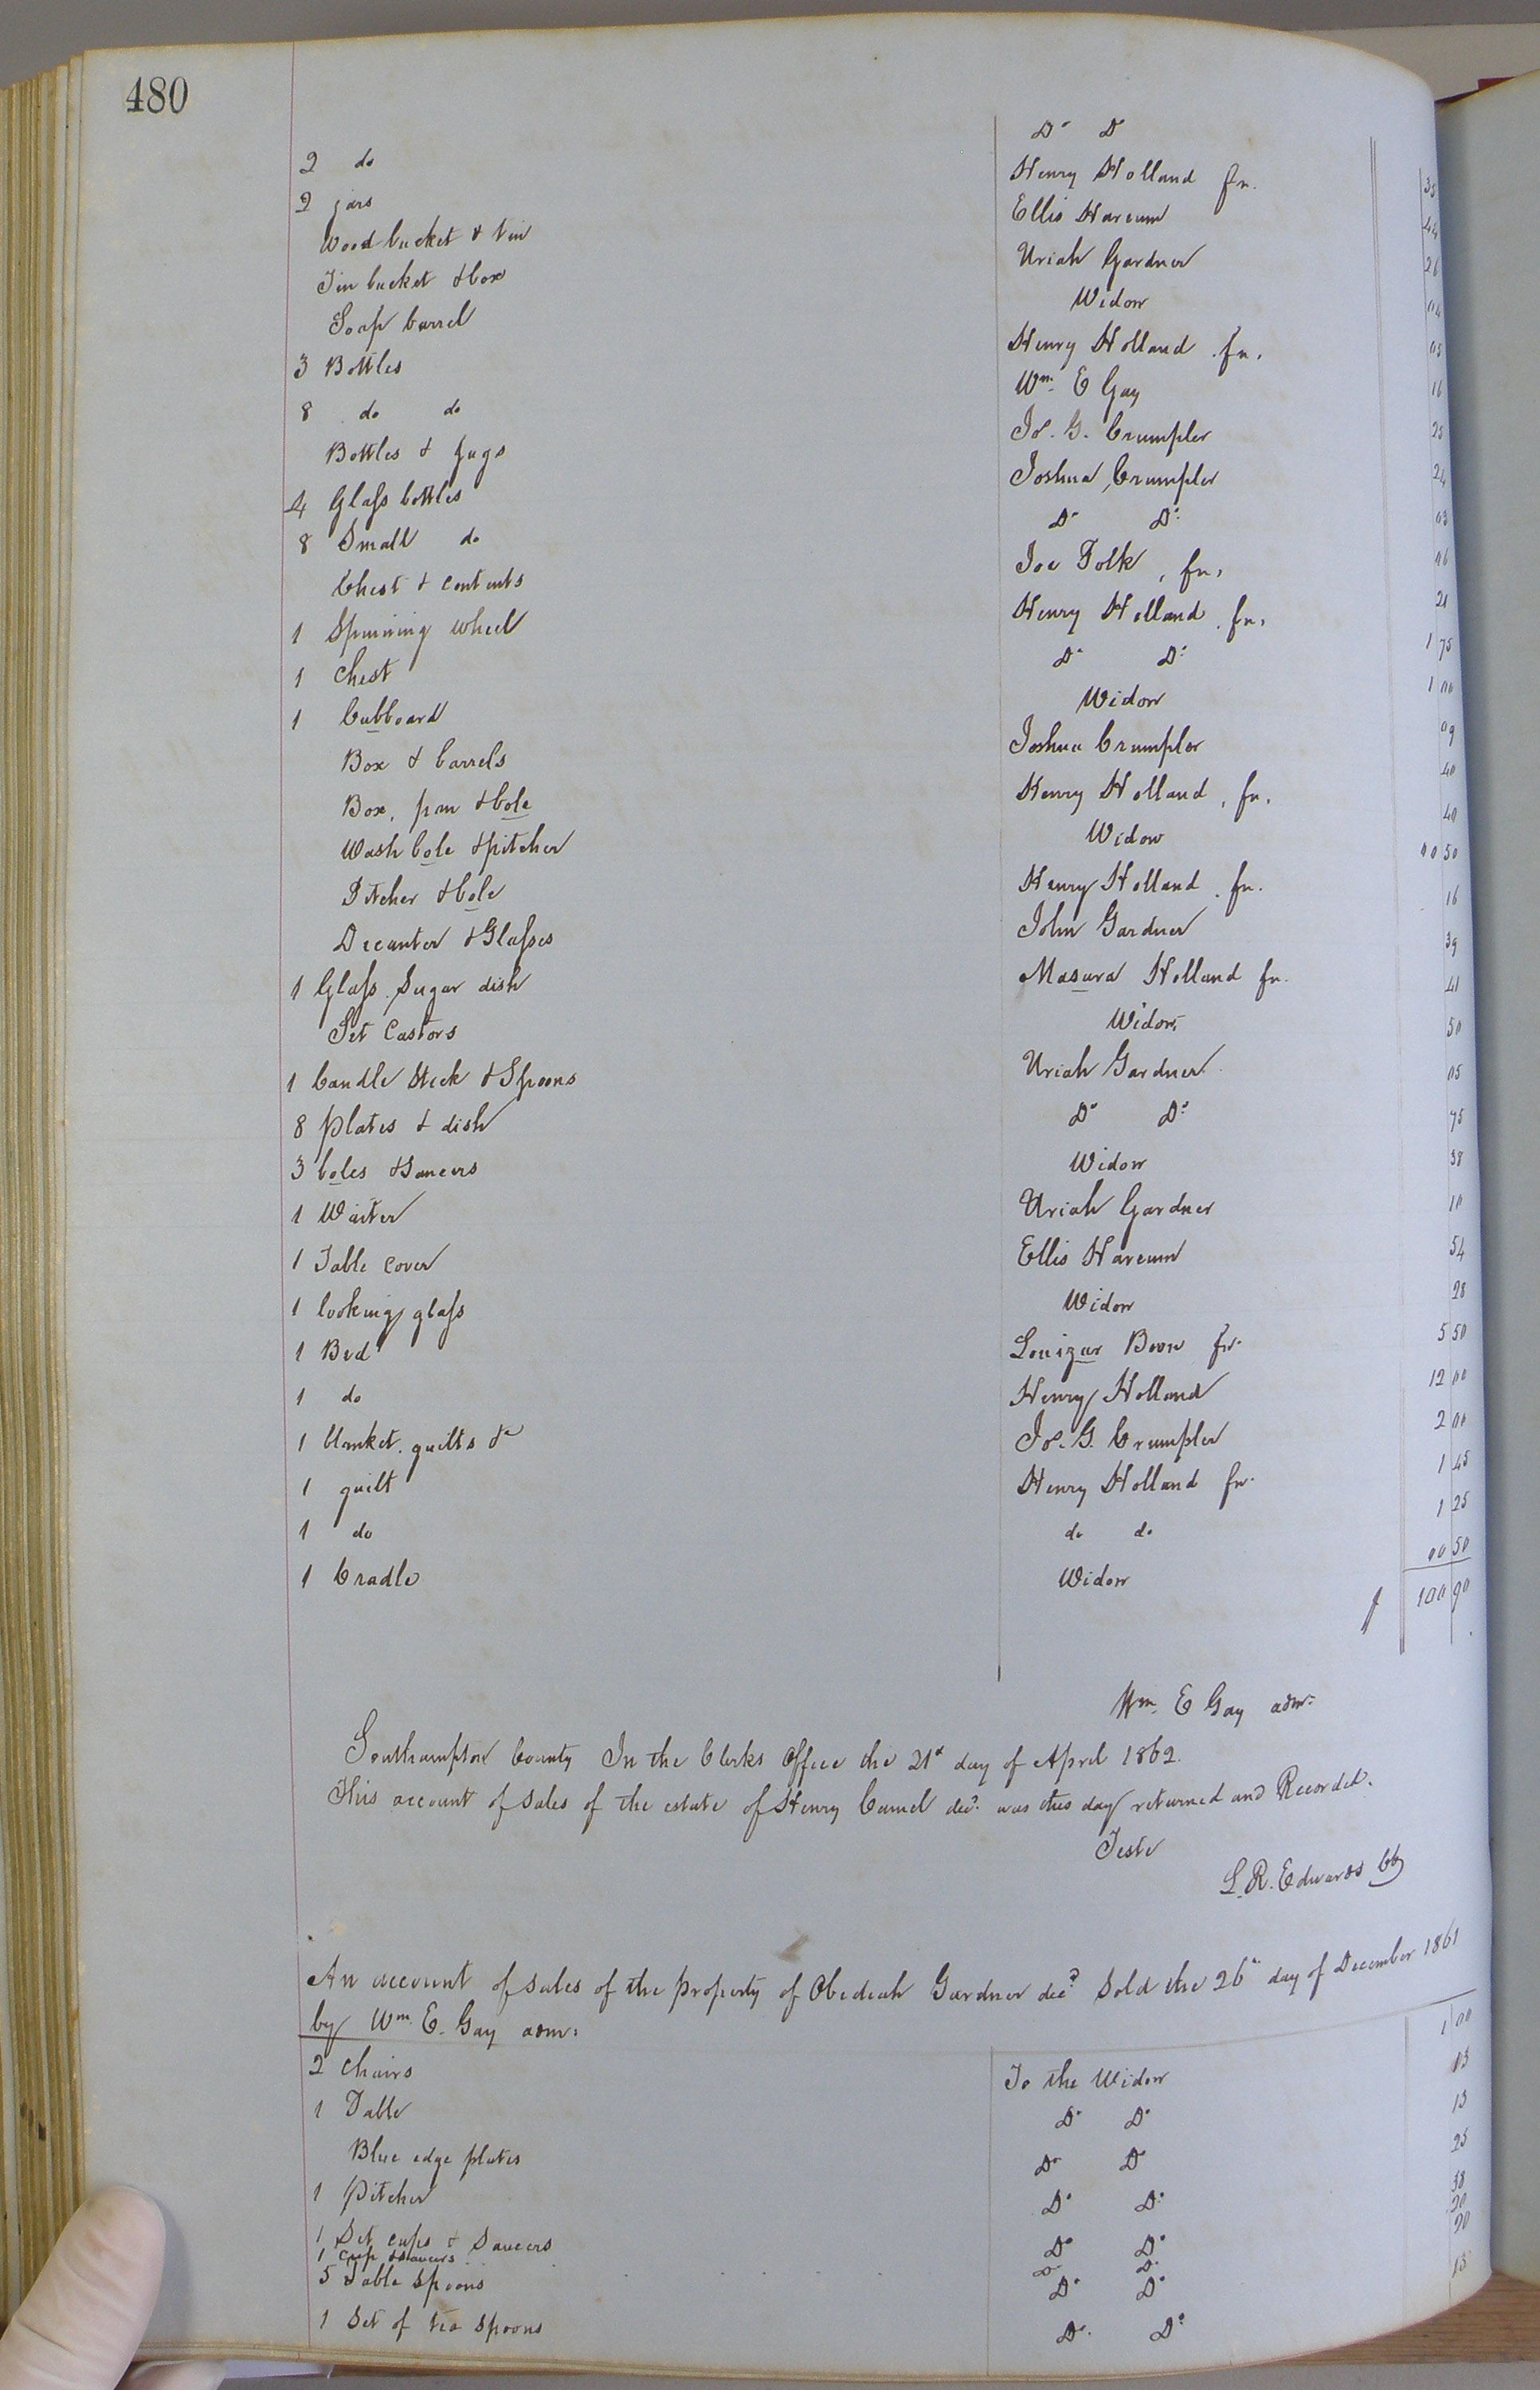 480
2 do Do Do 35
2 jars Henry Holland fn. 44
Wood bucket & tin Ellis Harcum 26
Tin bucket & box Uriah Gardner 04
Soap barrel Widow 05
3 Bottles Henry Holland fn. 16
8 do do Wm. E Gay 25
Bottles & Jugs Jos. G. Crumpler 24
4 Glass bottles Joshua Crumpler 03
8 Small do Do Do 06
Chest & contents Joe Folk, fn. 21
1 Spinning wheel Henry Holland, fn. 1 75
1 Chest Do Do 1 00
1 Cubboard Widow 09
Box & barrels Joshua Crumpler 40
Box, pan & bole Henry Holland, fn. 40
Wash bole & pitcher Widow 00 50
Pitcher & bole Henry Holland fn. 16
Decanter & Glasses John Gardner 39
1 Glass Sugar dish Masura Holland fn. 41
Set Castors Widow 50
1 Candle Stick & Spoons Uriah Gardner 05
8 plates & dish Do Do 75
3 boles & Saucers Widow 38
1 Waiter Uriah Gardner 10
1 Table cover Ellis Harcum 54
1 looking glass Widow 28
1 Bed Louizar Boon fn. 5 50
1 do Henry Holland 12 00
1 blanket, quilts &c Jos. G. Crumpler 2 00
1 quilt Henry Holland fn. 1 45
1 do do do 1 25
1 Cradle Widow 00 50
$ 100 90
Wm. E Gay adm.
Southampton County In the Clerks Office the 21st day of April 1862.
This account of sales of the estate of Henry Camel decd. was this day returned and Recorded.
Teste
L. R. Edwards CC
An account of sales of the property of Obediah Gardner decd. Sold the 26th day of December 1861
by Wm. E. Gay adm.
2 Chairs To the Widow 1 00
1 Table Do Do 13
Blue edge plates Do Do 13
1 Pitcher Do Do 25
1 Set cups & Saucers Do Do 38
1 Cup & saucers Do Do 20
5 Table Spoons Do Do 20
1 Set of tea Spoons Do Do 13